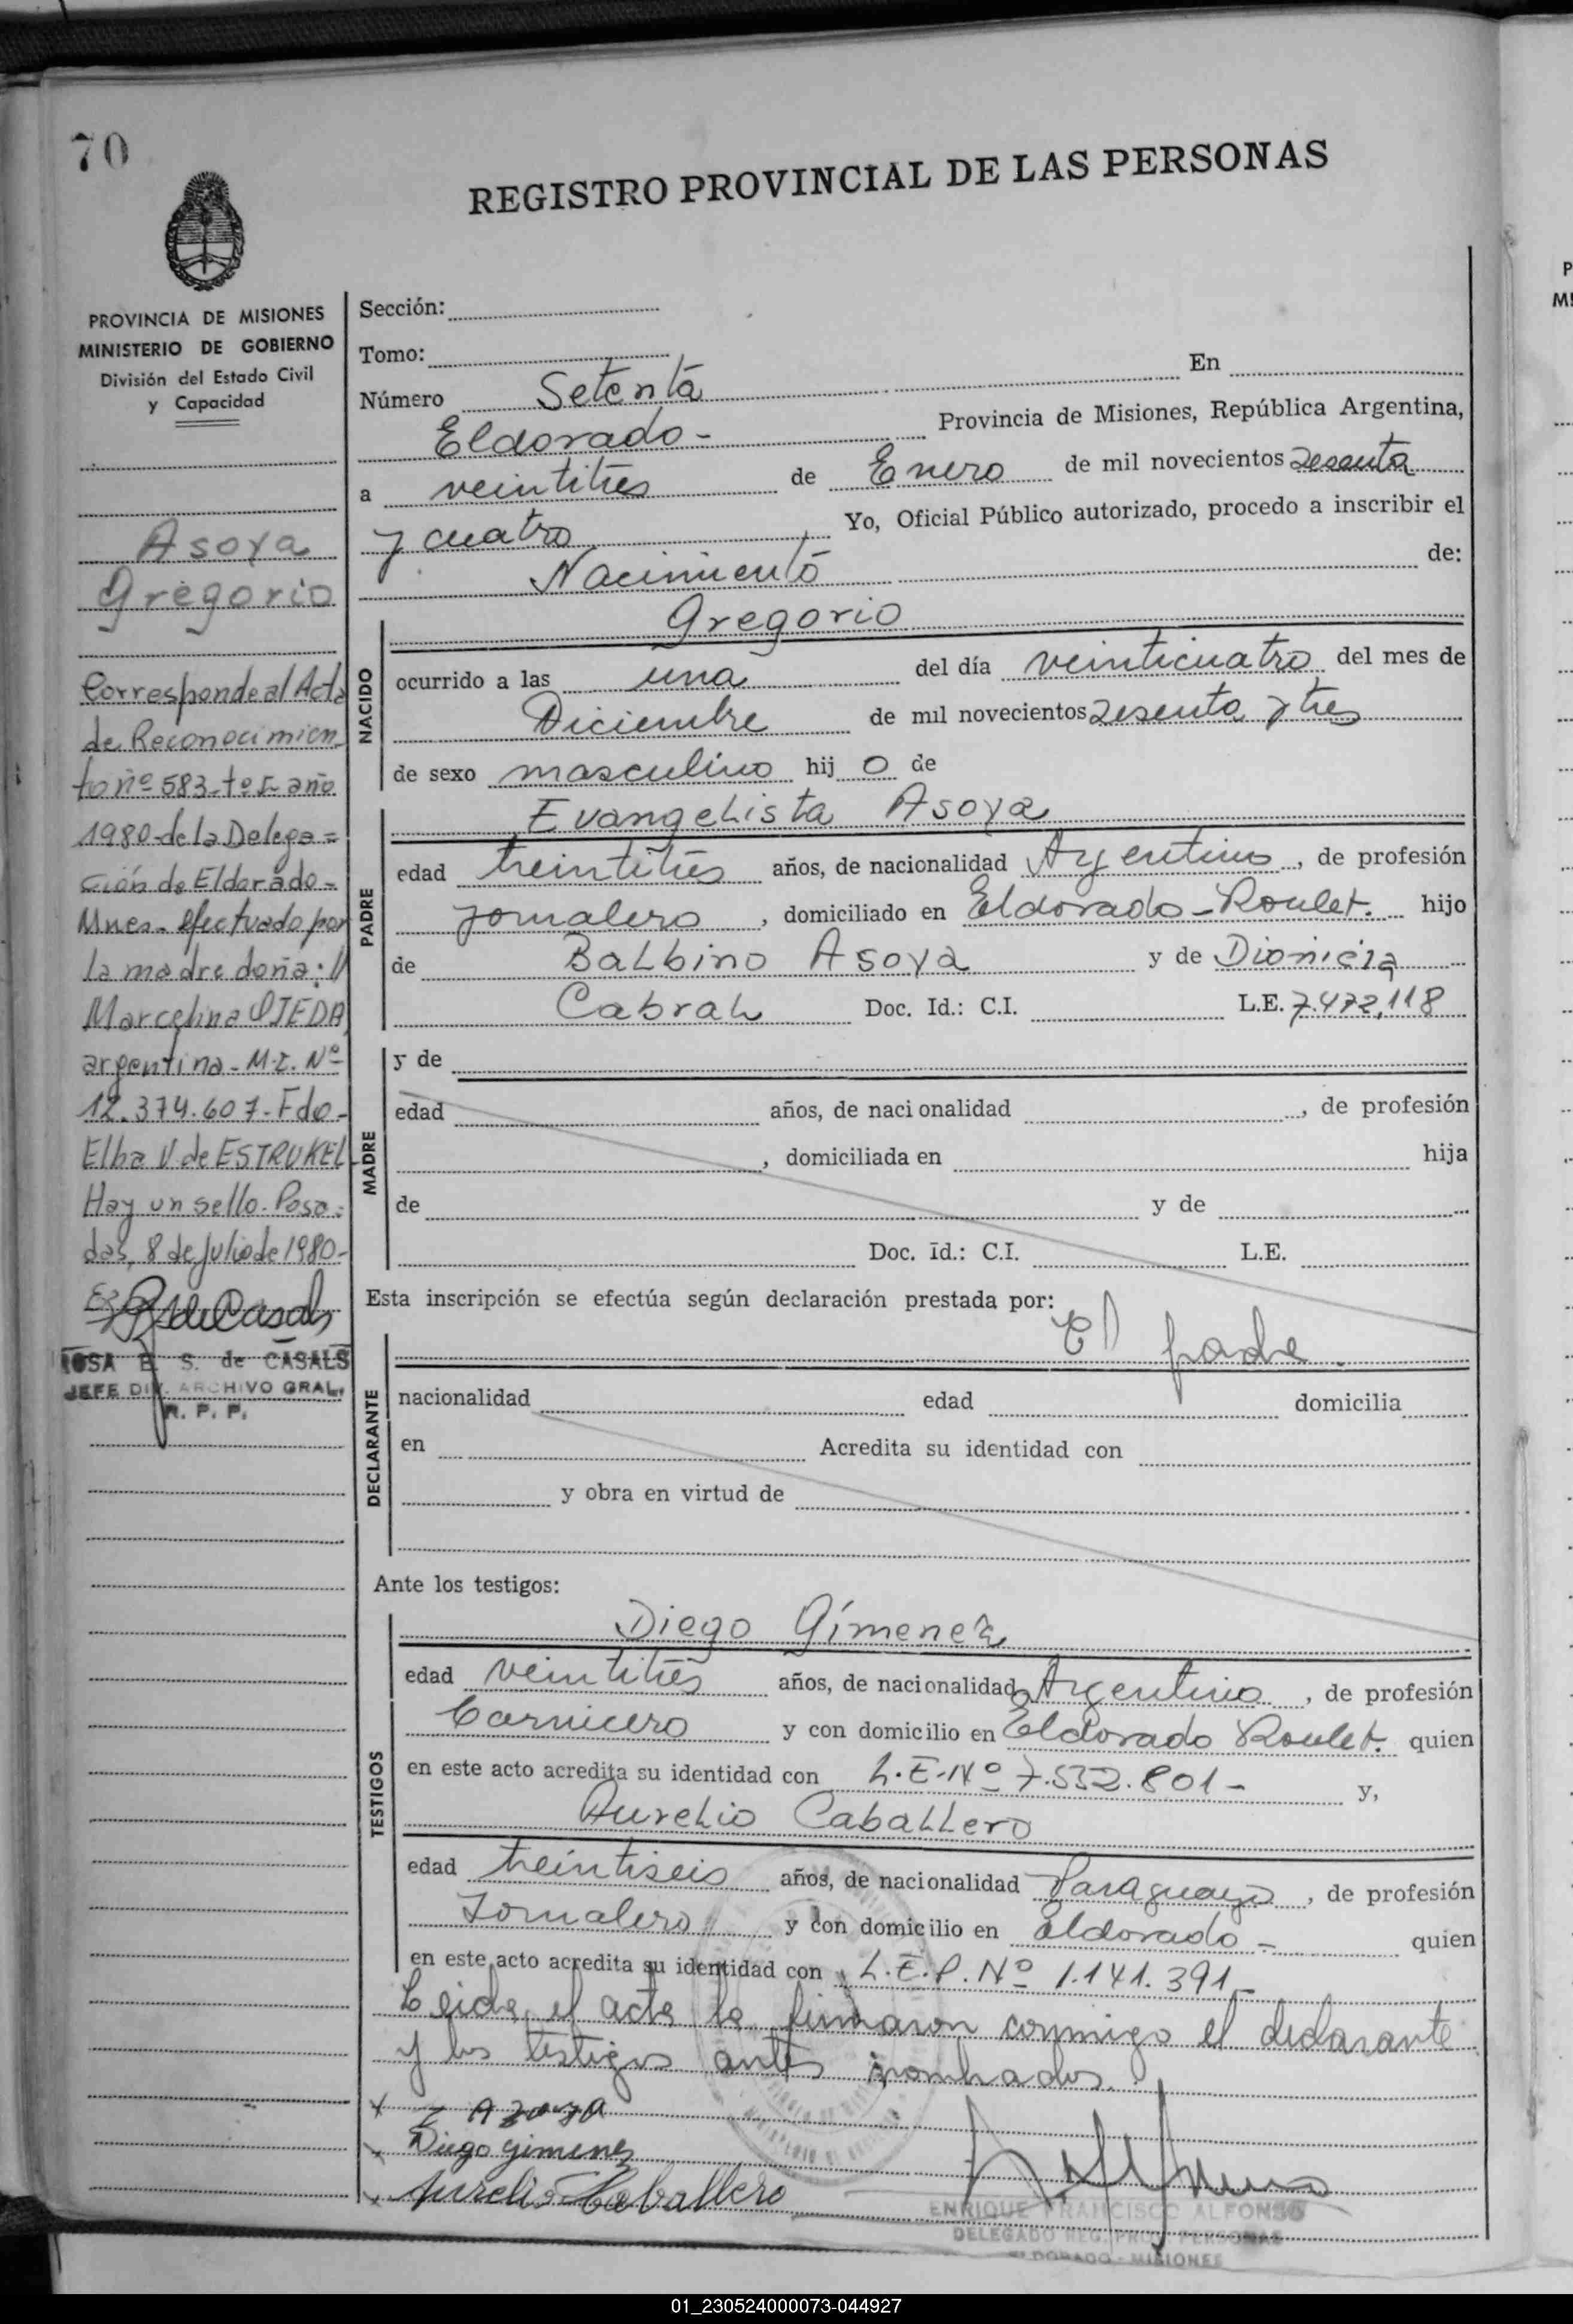 70
REGISTRO PROVINCIAL DE LAS PERSONAS
PROVINCIA DE MISIONES
MINISTERIO DE GOBIERNO
División del Estado Civil
y Capacidad
Asoya
Gregorio
Corresponde al Acta
de Reconocimien
to nº 583-tº I- año
1980-de la Delega=
ción de Eldorado=
Mnes. efectuado por
la madre doña: //
Marcelina OJEDA
argentina-M.I. Nº
12.374.607-Fdo-
Elba V. de ESTRUKEL
Hay un sello. Posa=
das, 8 de julio de 1980-
ROSA E. S. de CASALS
JEFE DIV. ARCHIVO GRAL.
R. P. P.
Sección:
Tomo:
Número Setenta En
Eldorado- Provincia de Misiones, República Argentina,
a veintitres de Enero de mil novecientos sesenta
y cuatro Yo, Oficial Público autorizado, procedo a inscribir el
Nacimiento de:
NACIDO
Gregorio
ocurrido a las una del día veinticuatro del mes de
Diciembre de mil novecientos sesenta y tres
de sexo masculino hij o de
PADRE
Evangelista Asoya
edad treintitres años, de nacionalidad Argentino, de profesión
Jornalero, domiciliado en Eldorado-Roulet. hijo
de Balbino Asoya y de Dionicia
Cabral Doc. Id.: C.I. L.E. 7.472.118
MADRE
y de
edad años, de naci onalidad , de profesión
, domiciliada en hija
de y de
Doc. Id.: C.I. L.E.
Esta inscripción se efectúa según declaración prestada por:
El padre.
DECLARANTE
nacionalidad edad domicilia
en Acredita su identidad con
y obra en virtud de
Ante los testigos:
TESTIGOS
Diego Gimenez
edad veintitres años, de nacionalidad Argentino, de profesión
Carnicero y con domicilio en Eldorado Roulet. quien
en este acto acredita su identidad con L.E-Nº 7.532.801- y,
Aurelio Caballero
edad treintiseis años, de nacionalidad Paraguayo, de profesión
Jornalero y con domicilio en Eldorado- quien
en este acto acredita su identidad con L.E.P. Nº 1.141.391-
Leida el acta la firmaron conmigo el declarante
y los testigos antes nombrados.
Diego Gimenez
Aurelio Caballero
ENRIQUE FRANCISCO ALFONSO
DELEGADO REG. PROV. PERSONAS
ELDORADO - MISIONES
01_230524000073-044927